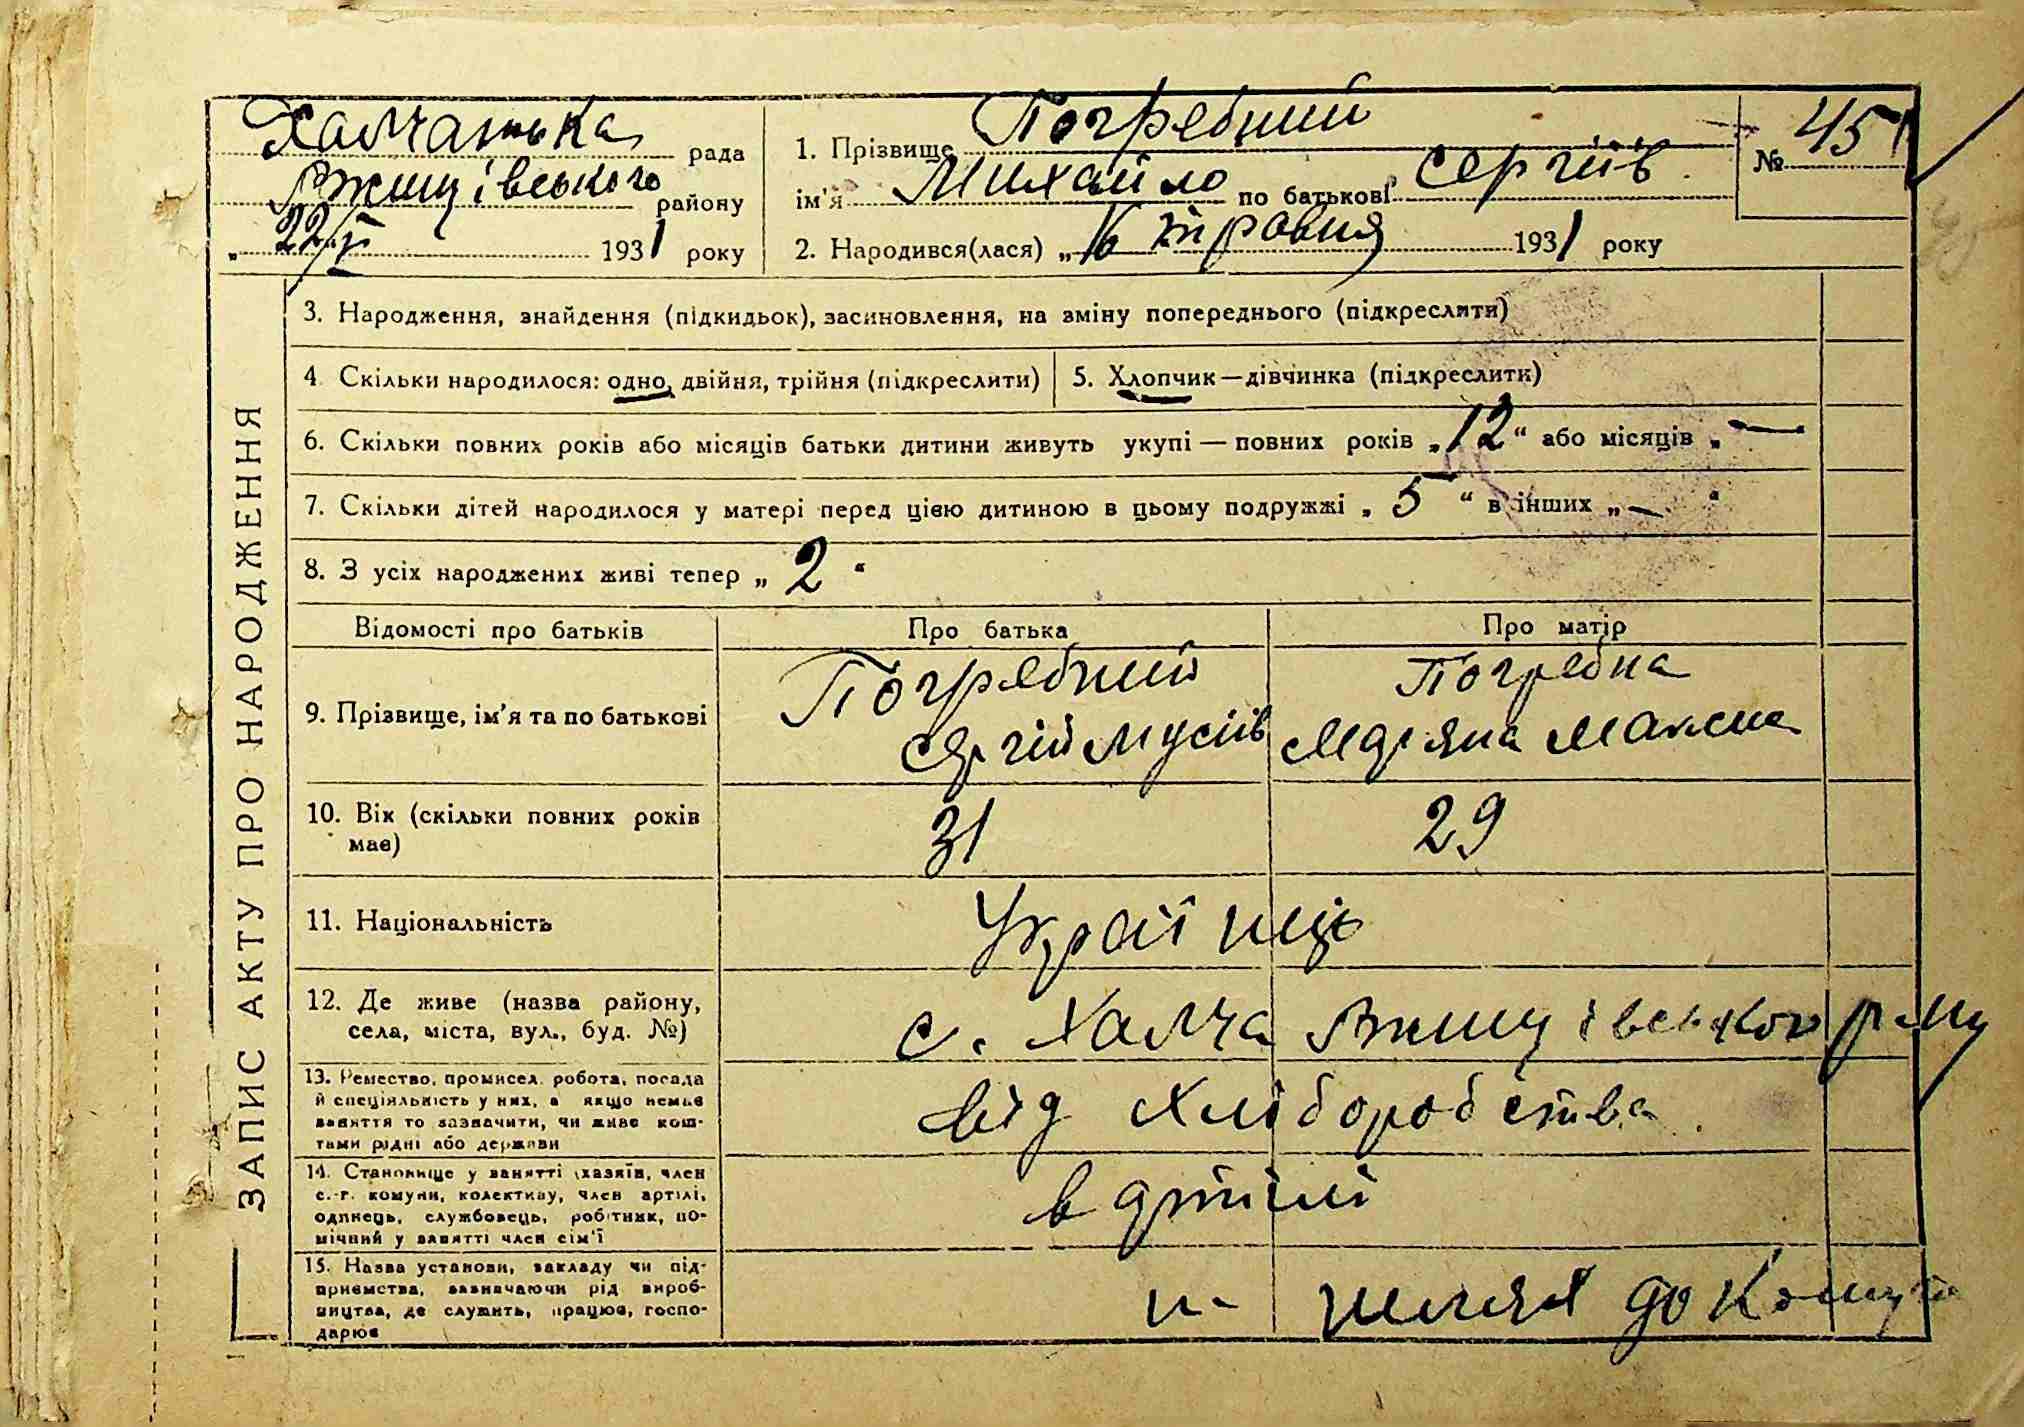 Халчанська рада
Ржищівського району
„ 22/V 1931 року
1. Прізвище Погребний
ім'я Михайло по батькові Сергіїв
№ 45
2. Народився(лася) „ 16 травня 1931 року
ЗАПИС АКТУ ПРО НАРОДЖЕННЯ
3. Народження, знайдення (підкидьок), засиновлення, на зміну попереднього (підкреслити)
4. Скільки народилося: одно, двійня, трійня (підкреслити)
5. Хлопчик—дівчинка (підкреслити)
6. Скільки повних років або місяців батьки дитини живуть укупі — повних років „ 12 “ або місяців „ —
7. Скільки дітей народилося у матері перед цією дитиною в цьому подружжі „ 5 “ в інших „ — “
8. З усіх народжених живі тепер „ 2 “
Відомості про батьків
Про батька
Про матір
9. Прізвище, ім'я та по батькові
Погребний
Сергій Мусіїв
Погребна
10. Вік (скільки повних років
має)
31
29
11. Національність
Українці
12. Де живе (назва району,
села, міста, вул., буд. №)
с. Халча Ржищівського р-ну
13. Ремество, промисел, робота, посада
й спеціяльність у них, а якщо немає
заняття то зазначити, чи живе кош-
тами рідні або держави
від хліборобства
14. Становище у занятті (хазяїн, член
с.-г. комуни, колективу, член артілі,
одинець, службовець, робітник, по-
мічний у занятті член сім'ї
в артілі
15. Назва установи, закладу чи під-
приємства, зазначаючи рід вироб-
ництва, де служить, працює, госпо-
дарює